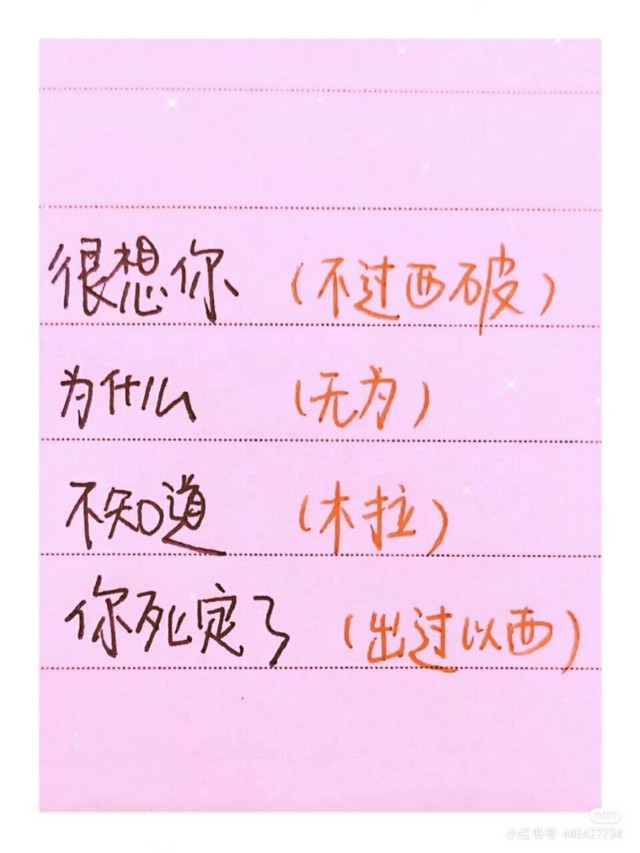 很想你 (不过西破)
为什么 (无为)
不知道 (木拉)
你死定了 (出过以西)
小红书
小红书号: 448427734